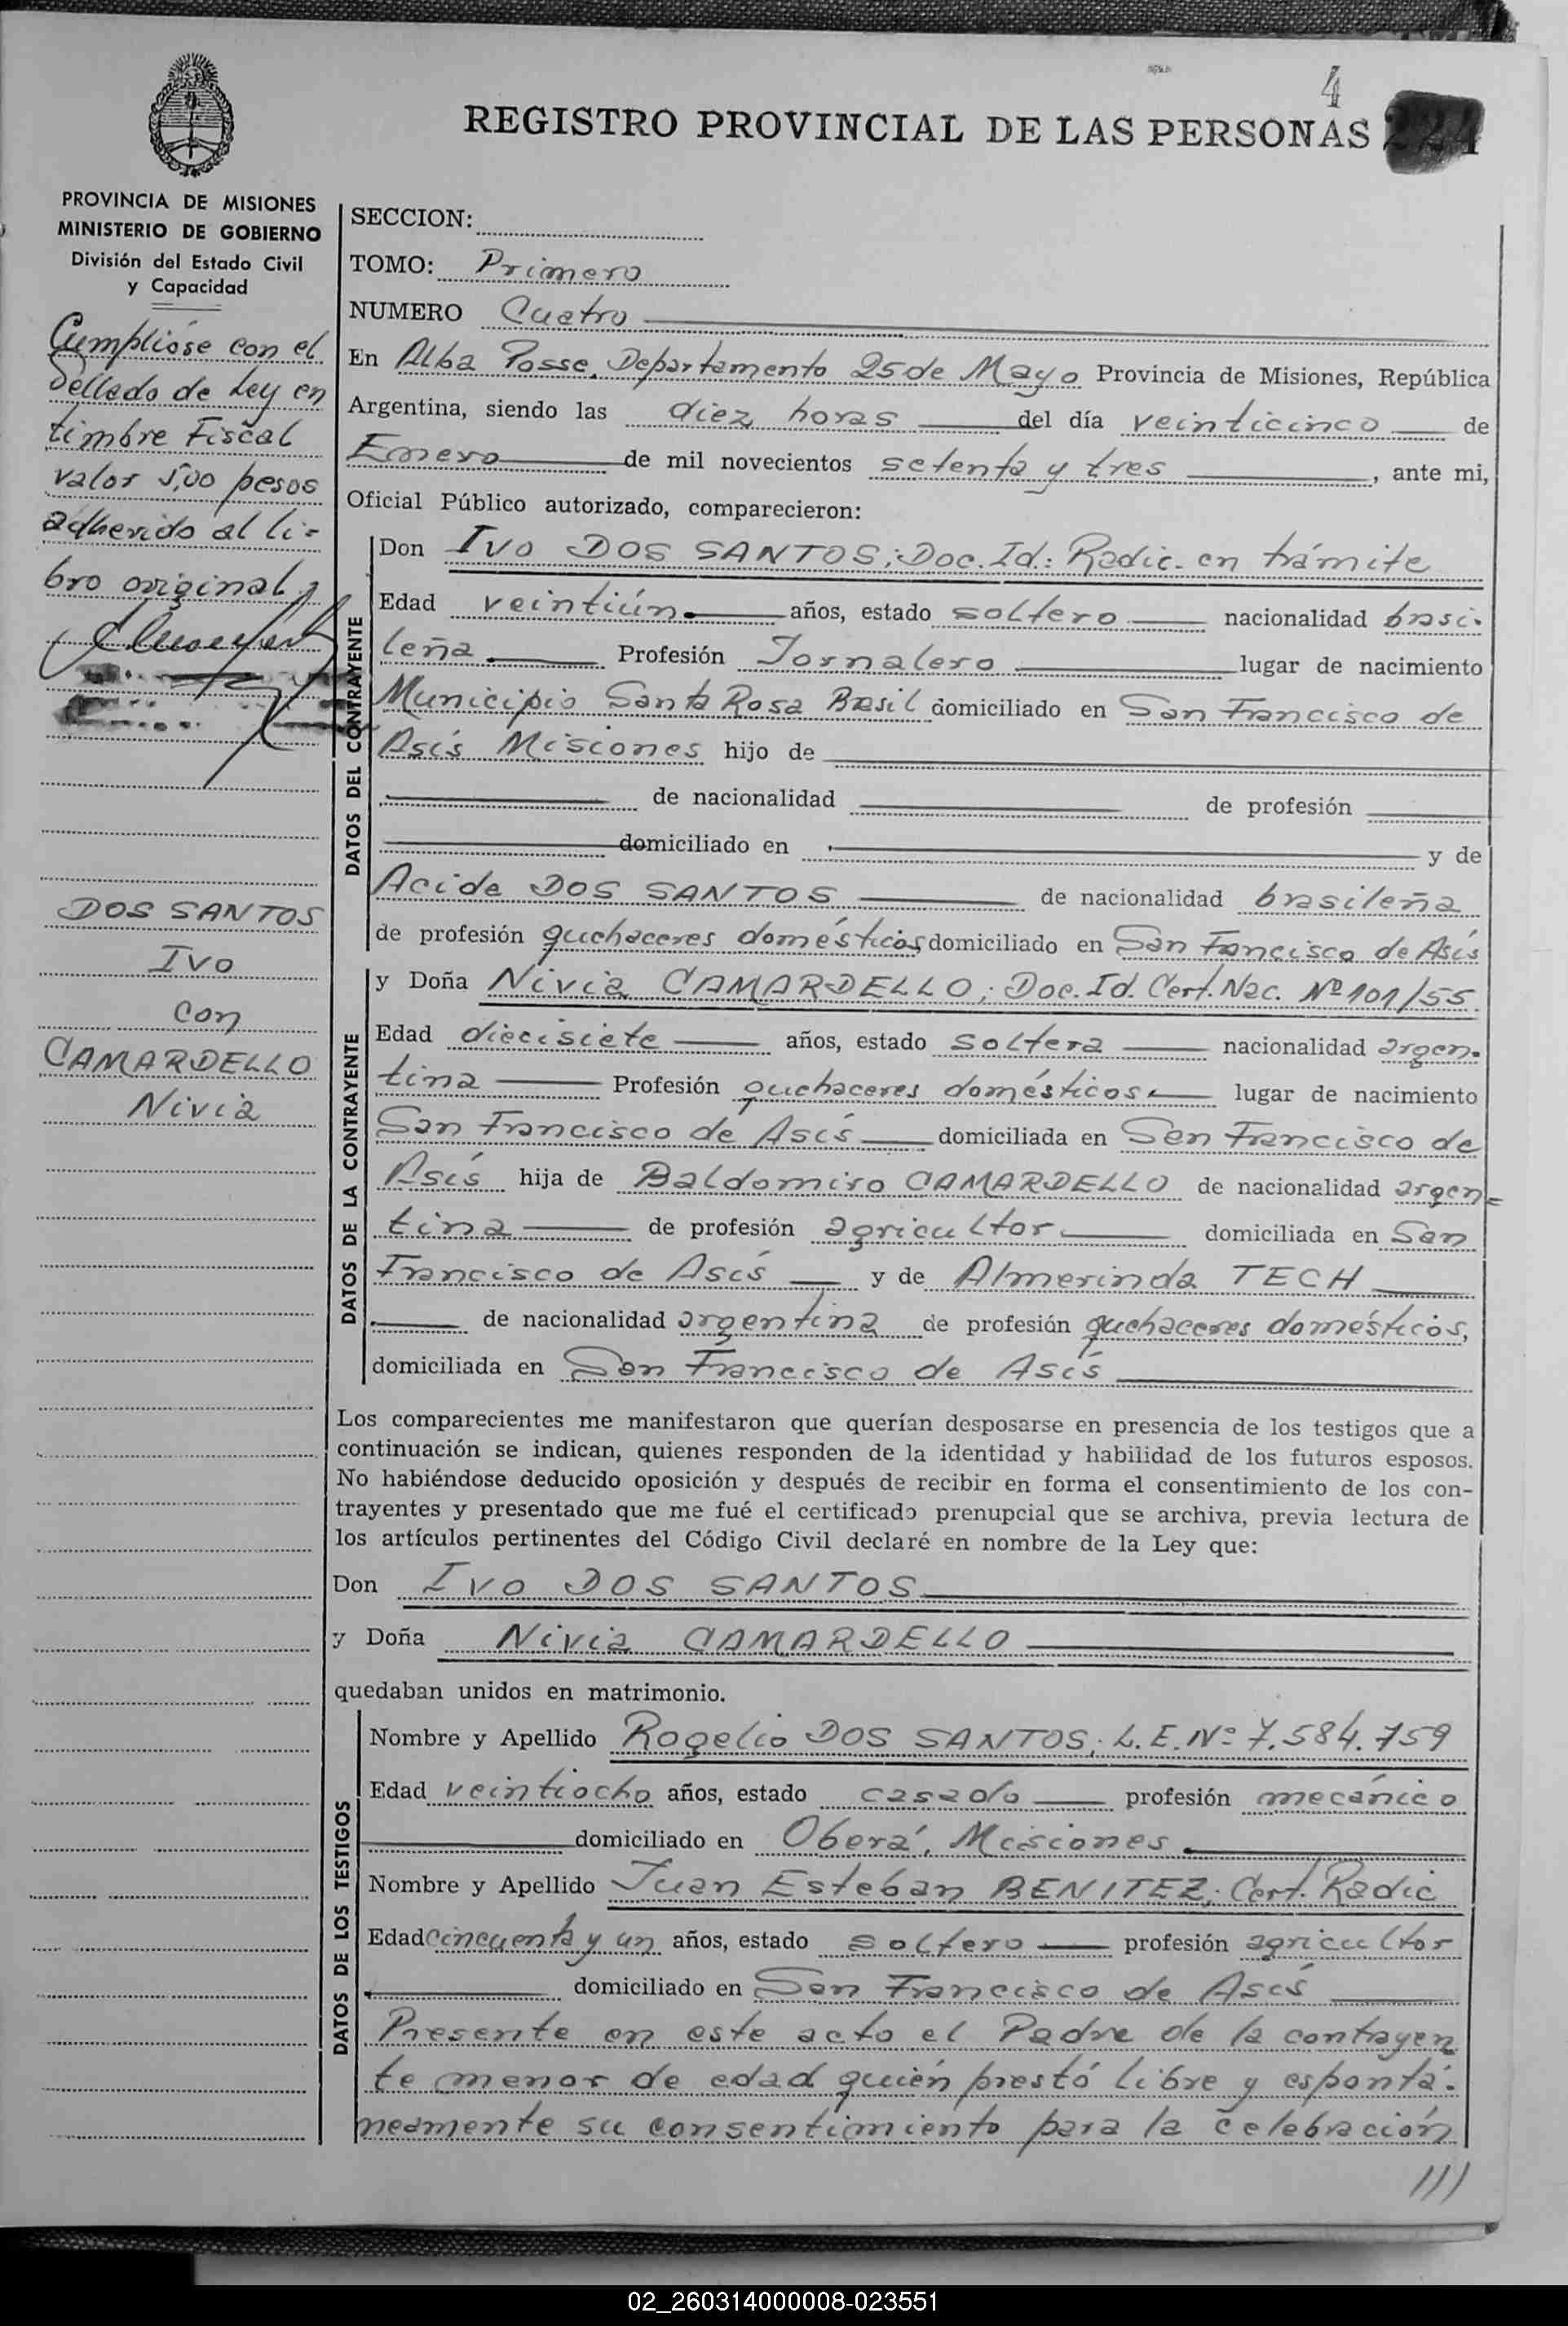 4
REGISTRO PROVINCIAL DE LAS PERSONAS
PROVINCIA DE MISIONES
MINISTERIO DE GOBIERNO
División del Estado Civil
y Capacidad
Cumplióse con el
Sellado de Ley en
timbre Fiscal
valor 5,00 pesos
adherido al li-
bro original,
DOS SANTOS
Ivo
con
CAMARDELLO
Nivia
SECCION:
TOMO: Primero
NUMERO Cuatro
En Alba Posse, Departamento 25 de Mayo Provincia de Misiones, República
Argentina, siendo las diez horas del día veinticinco de
Enero de mil novecientos setenta y tres, ante mi,
Oficial Público autorizado, comparecieron:
DATOS DEL CONTRAYENTE
Don Ivo DOS SANTOS; Doc. Id.: Radic. en trámite
Edad veintiún. años, estado soltero nacionalidad brasi-
leña. Profesión Jornalero lugar de nacimiento
Municipio Santa Rosa Brasil domiciliado en San Francisco de
Asís Misiones hijo de
de nacionalidad de profesión
domiciliado en y de
Acida DOS SANTOS de nacionalidad brasileña
de profesión quehaceres domésticos, domiciliado en San Fancisco de Asís
DATOS DE LA CONTRAYENTE
y Doña Nivia CAMARDELLO; Doc. Id. Cert. Nac. Nº 101/55.
Edad diecisiete años, estado soltera nacionalidad argen-
tina Profesión quehaceres domésticos lugar de nacimiento
San Francisco de Asís domiciliada en San Francisco de
Asís hija de Baldomiro CAMARDELLO de nacionalidad argen-
tina de profesión agricultor domiciliada en San
Francisco de Asís y de Almerinda TECH
de nacionalidad argentina de profesión quehaceres domésticos,
domiciliada en San Francisco de Asís
Los comparecientes me manifestaron que querían desposarse en presencia de los testigos que a
continuación se indican, quienes responden de la identidad y habilidad de los futuros esposos.
No habiéndose deducido oposición y después de recibir en forma el consentimiento de los con-
trayentes y presentado que me fué el certificado prenupcial que se archiva, previa lectura de
los artículos pertinentes del Código Civil declaré en nombre de la Ley que:
Don Ivo DOS SANTOS
y Doña Nivia CAMARDELLO
quedaban unidos en matrimonio.
DATOS DE LOS TESTIGOS
Nombre y Apellido Rogelio DOS SANTOS; L.E. Nº 7.584.759
Edad veintiocho años, estado casado profesión mecánico
domiciliado en Oberá, Misiones.
Nombre y Apellido Juan Esteban BENITEZ; Cert. Radic
Edad cincuenta y un años, estado soltero profesión agricultor
domiciliado en San Francisco de Asís
Presente en este acto el Padre de la contrayen
te menor de edad quién prestó libre y espontá-
neamente su consentimiento para la celebración
///
02_260314000008-023551